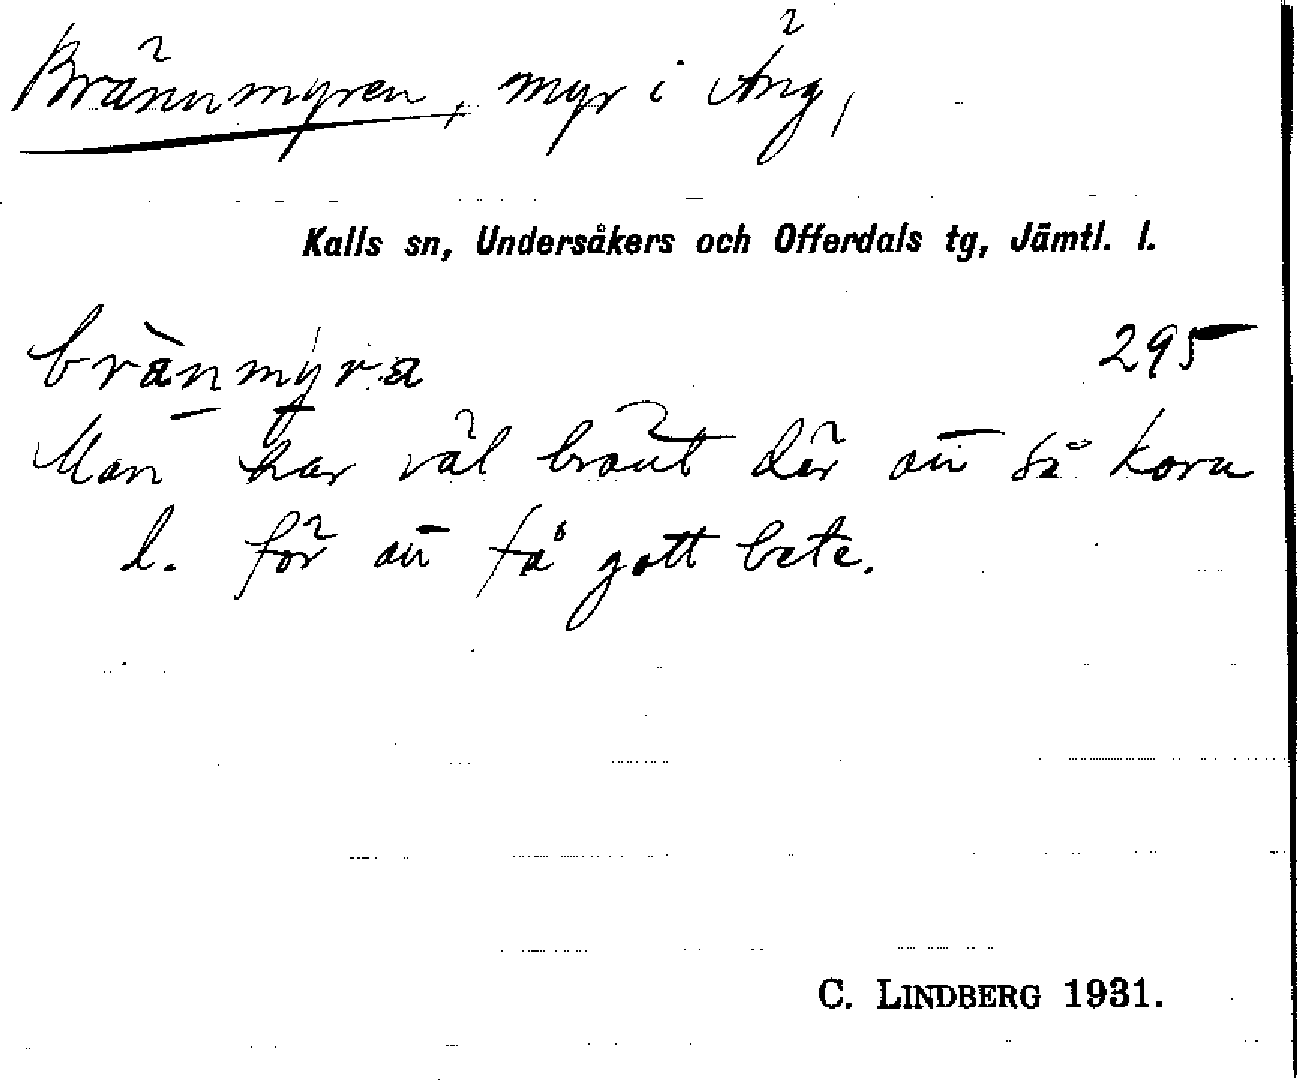 Brännmyren, myr i Äng,
Kalls sn, Undersåkers och Offerdals tg, Jämtl. l.
bränmýra 295
Man har väl bränt där att så korn
l. för att få gott bete.
C. LINDBERG 1931.